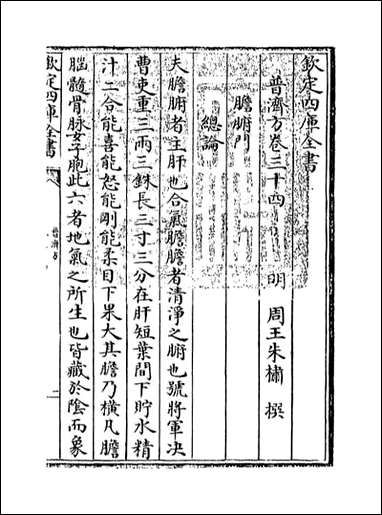 欽定四庫全書
普濟方卷三十四　明　周王朱橚　撰
膽腑門
總論
夫膽腑者主肝也合氣膽膽者清淨之腑也號將軍决
曹吏重三兩三銖長三寸三分在肝短葉間下貯水精
汁二合能喜能怒能剛能柔目下果大其膽乃横凡膽
腦髓骨脉女子胞此六者地氣之所生也皆藏於陰而象
欽定四庫全書
普濟方